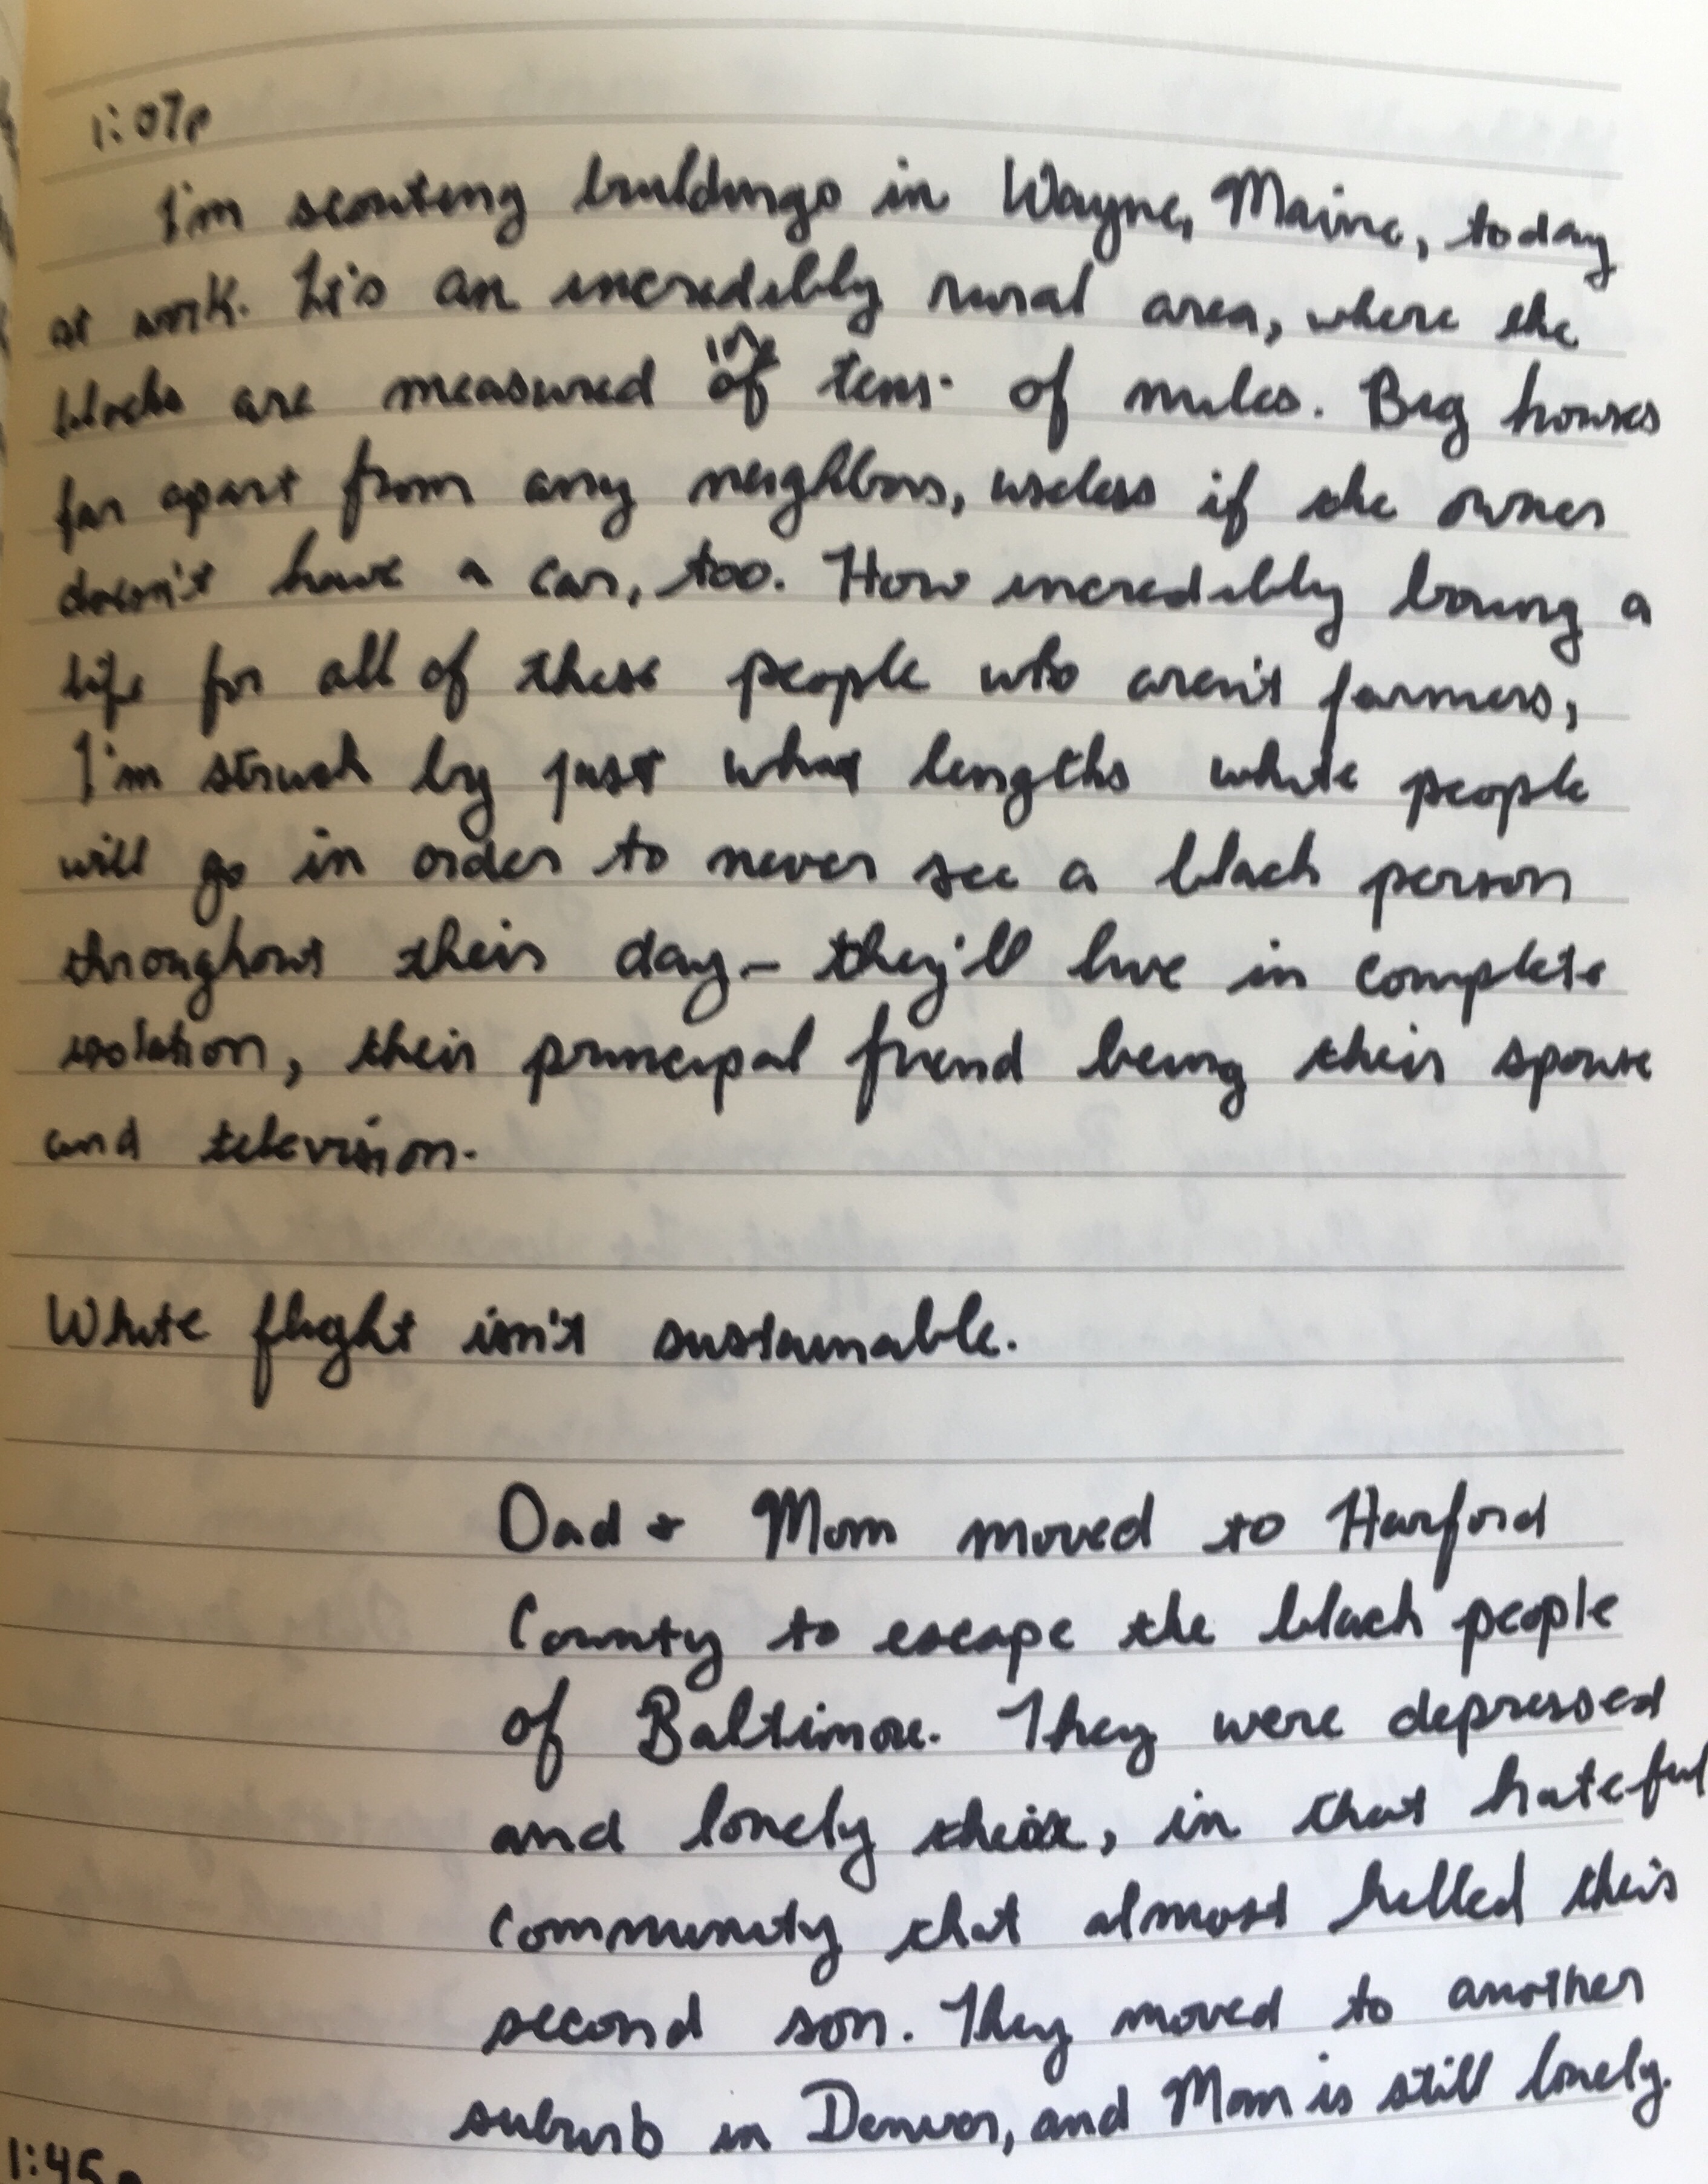 1:07p
I'm scouting buildings in Wayne, Maine, today
at work. It's an incredibly rural area, where the
blocks are measured of in tens of miles. Big houses
far apart from any neighbors, useless if the owner
doesn't have a car, too. How incredibly boring a
life for all of these people who aren't farmers,
I'm struck by just what lengths white people
will go in order to never see a black person
throughout their day – they'll live in complete
isolation, their principal friend being their spouse
and television.
White flight isn't sustainable.
Dad + Mom moved to Harford
County to escape the black people
of Baltimore. They were depressed
and lonely there, in that hateful
community that almost killed their
second son. They moved to another
suburb in Denver, and Mom is still lonely.
1:45p